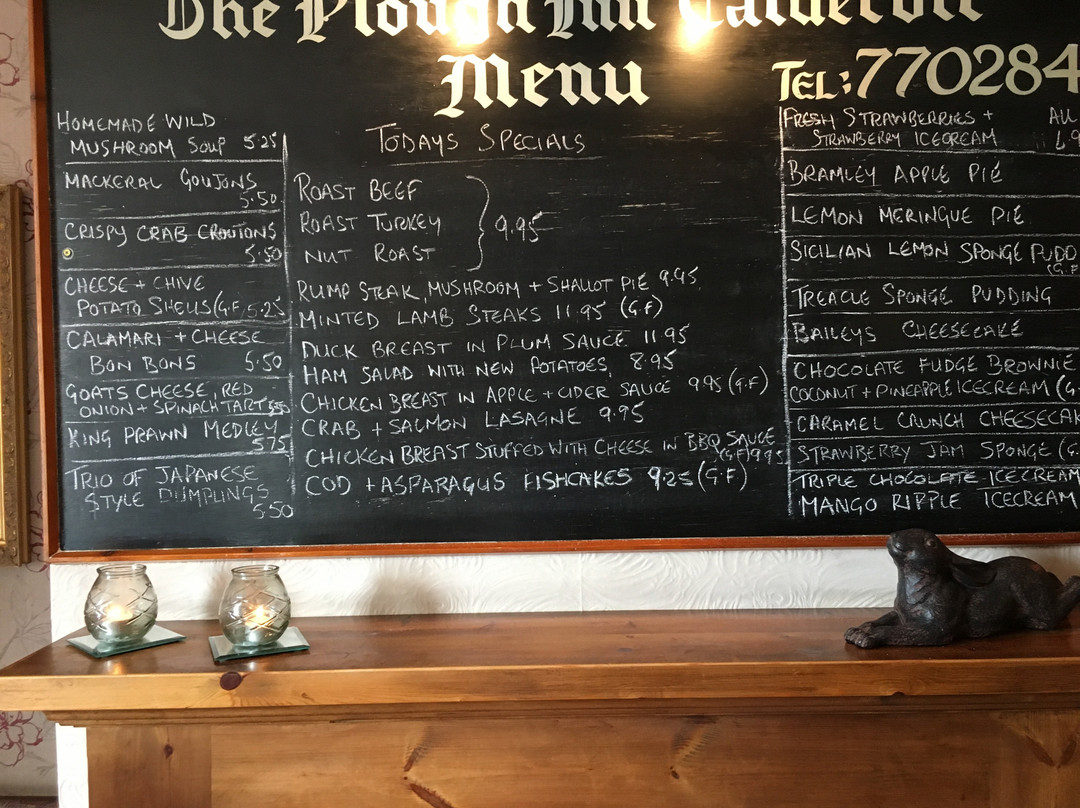 The Plough Inn Calder
Menu
TEL: 770284
HOMEMADE WILD
MUSHROOM SOUP 5.25
MACKERAL GOUJONS
5.50
CRISPY CRAB CROUTONS
5.50
CHEESE + CHIVE
POTATO SHELLS (G.F) 5.25
CALAMARI + CHEESE
BON BONS 5.50
GOATS CHEESE, RED
ONION + SPINACH TART
KING PRAWN MEDLEY
5.75
TRIO OF JAPANESE
STYLE DUMPLINGS
5.50
TODAYS SPECIALS
ROAST BEEF
ROAST TURKEY 9.95
NUT ROAST
RUMP STEAK, MUSHROOM + SHALLOT PIE 9.95
MINTED LAMB STEAKS 11.95 (G.F)
DUCK BREAST IN PLUM SAUCE 11.95
HAM SALAD WITH NEW POTATOES, 8.95
CHICKEN BREAST IN APPLE + CIDER SAUCE 9.95 (G.F)
CRAB + SALMON LASAGNE 9.95
CHICKEN BREAST STUFFED WITH CHEESE IN BBQ SAUCE
(G.F) 9.95
COD + ASPARAGUS FISHCAKES 9.25 (G.F)
FRESH STRAWBERRIES + ALL
STRAWBERRY ICECREAM 4.9
BRAMLEY APPLE PIE
LEMON MERINGUE PIE
SICILIAN LEMON SPONGE PUDD
(G.F
TREACLE SPONGE PUDDING
BAILEYS CHEESECAKE
CHOCOLATE FUDGE BROWNIE
COCONUT + PINEAPPLE ICECREAM (G.
CARAMEL CRUNCH CHEESECAK
STRAWBERRY JAM SPONGE (G.
TRIPLE CHOCOLATE ICECREAM
MANGO RIPPLE ICECREAM